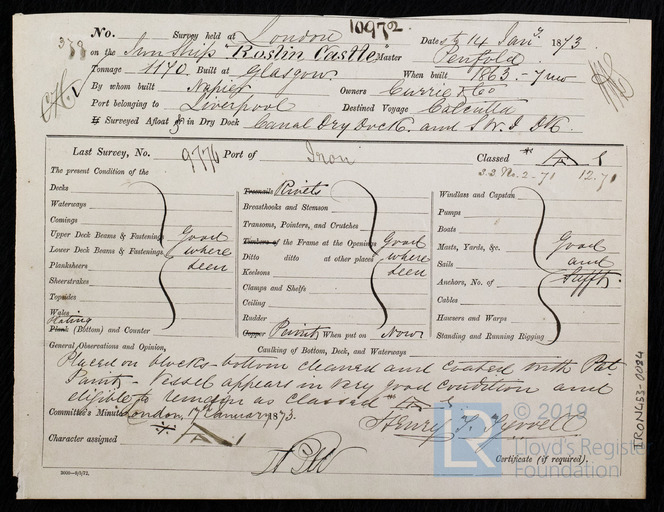 No. Survey held at London 10972 Date 14 Jany 1873
on the Iron Ship "Roslin Castle" Master Penfold
Tonnage 1170 Built at Glasgow When built 1863 - 7 mo
By whom built Napier Owners Currie & Co
Port belonging to Liverpool Destined Voyage Calcutta
If Surveyed Afloat or in Dry Dock Canal Dry Dock and S.W.I. Dk.
Last Survey, No. 9776 Port of Iron Classed A 1
S.S No. 2-71 12.71
The present Condition of the
Decks
Waterways
Comings
Upper Deck Beams & Fastenings
Lower Deck Beams & Fastenings
Planksheers
Sheerstrakes
Topsides
Wales
Plating
Plank (Bottom) and Counter
Good
where
seen
Treenails Rivets
Breasthooks and Stemson
Transoms, Pointers, and Crutches
Timbers of the Frame at the Openings
Ditto ditto at other places
Keelsons
Clamps and Shelfs
Ceiling
Rudder
Copper Paint When put on Now
Good
where
seen
Windlass and Capstan
Pumps
Boats
Masts, Yards, &c.
Sails
Anchors, No. of
Cables
Hawsers and Warps
Standing and Running Rigging
Good
and
Sufft.
General Observations and Opinion, Caulking of Bottom, Deck, and Waterways
Placed on blocks - bottom cleaned and coated with Pat
Paint - Vessel appears in very good condition and
eligible to remain as classed A 1
Committee's Minute London, 17th January 1873.
Henry T. Tyrrell
Character assigned A 1
Certificate (if required).
3000-8/5/72.
IRON453-0084
© 2019
Lloyd's Register
Foundation
LR